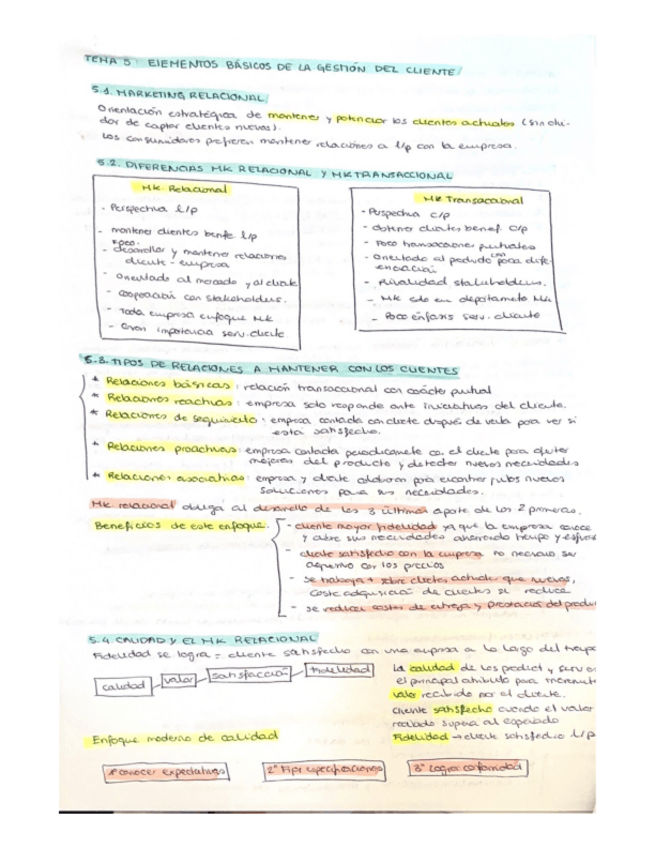 TEMA 5: ELEMENTOS BÁSICOS DE LA GESTIÓN DEL CLIENTE
5.1. MARKETING RELACIONAL
Orientación estratégica de mantener y potenciar los clientes actuales (sin olvi-
dar de captar clientes nuevos).
Los consumidores prefieren mantener relaciones a l/p con la empresa.
5.2. DIFERENCIAS MK RELACIONAL Y MK TRANSACCIONAL
Mk Relacional
- Perspectiva l/p
- mantener clientes benfc l/p
- desarrollar y mantener relaciones
cliente - empresa
- Orientado al mercado y al cliente
- Cooperación con stakeholders.
- Toda empresa enfoque MK
- Gran importancia serv. cliente
Mk Transaccional
- Perspectiva c/p
- obtener clientes benef. c/p
- Poco transacciones puntuales
- Orientado al producto con poca dife-
renciación
- Rivalidad stakeholders.
- MK solo en departamento Mk
- Poco énfasis serv. cliente
5.3. TIPOS DE RELACIONES A MANTENER CON LOS CLIENTES
* Relaciones básicas: relación transaccional con carácter puntual
* Relaciones reactivas: empresa solo responde ante iniciativas del cliente.
* Relaciones de seguimiento: empresa contacta con cliente después de venta para ver si
está satisfecho.
* Relaciones proactivas: empresa contacta periódicamente con el cliente para ofertar
mejoras del producto y detectar nuevas necesidades
* Relaciones asociativas: empresa y cliente colaboran para encontrar juntos nuevas
soluciones para sus necesidades.
Mk relacional obliga al desarrollo de los 3 últimos aparte de los 2 primeros.
Beneficios de este enfoque.
- cliente mayor fidelidad ya que la empresa conoce
y cubre sus necesidades ahorrando tiempo y esfuer
- cliente satisfecho con la empresa no necesario ser
agresivo con los precios
- se trabaja + sobre clientes actuales que nuevos,
coste adquisición de clientes se reduce
- se reducen costes de entrega y prestación del produ
5.4. CALIDAD Y EL MK RELACIONAL
Fidelidad se logra = cliente satisfecho con una empresa a lo largo del tiempo
calidad valor satisfacción fidelidad
La calidad de los product y serv es
el principal atributo para incrementa
valor recibido por el cliente.
Cliente satisfecho cuando el valor
recibido supera al esperado
Fidelidad → cliente satisfecho l/p
Enfoque moderno de calidad
1º conocer expectativas
2º Fijar especificaciones
3º Lograr conformidad